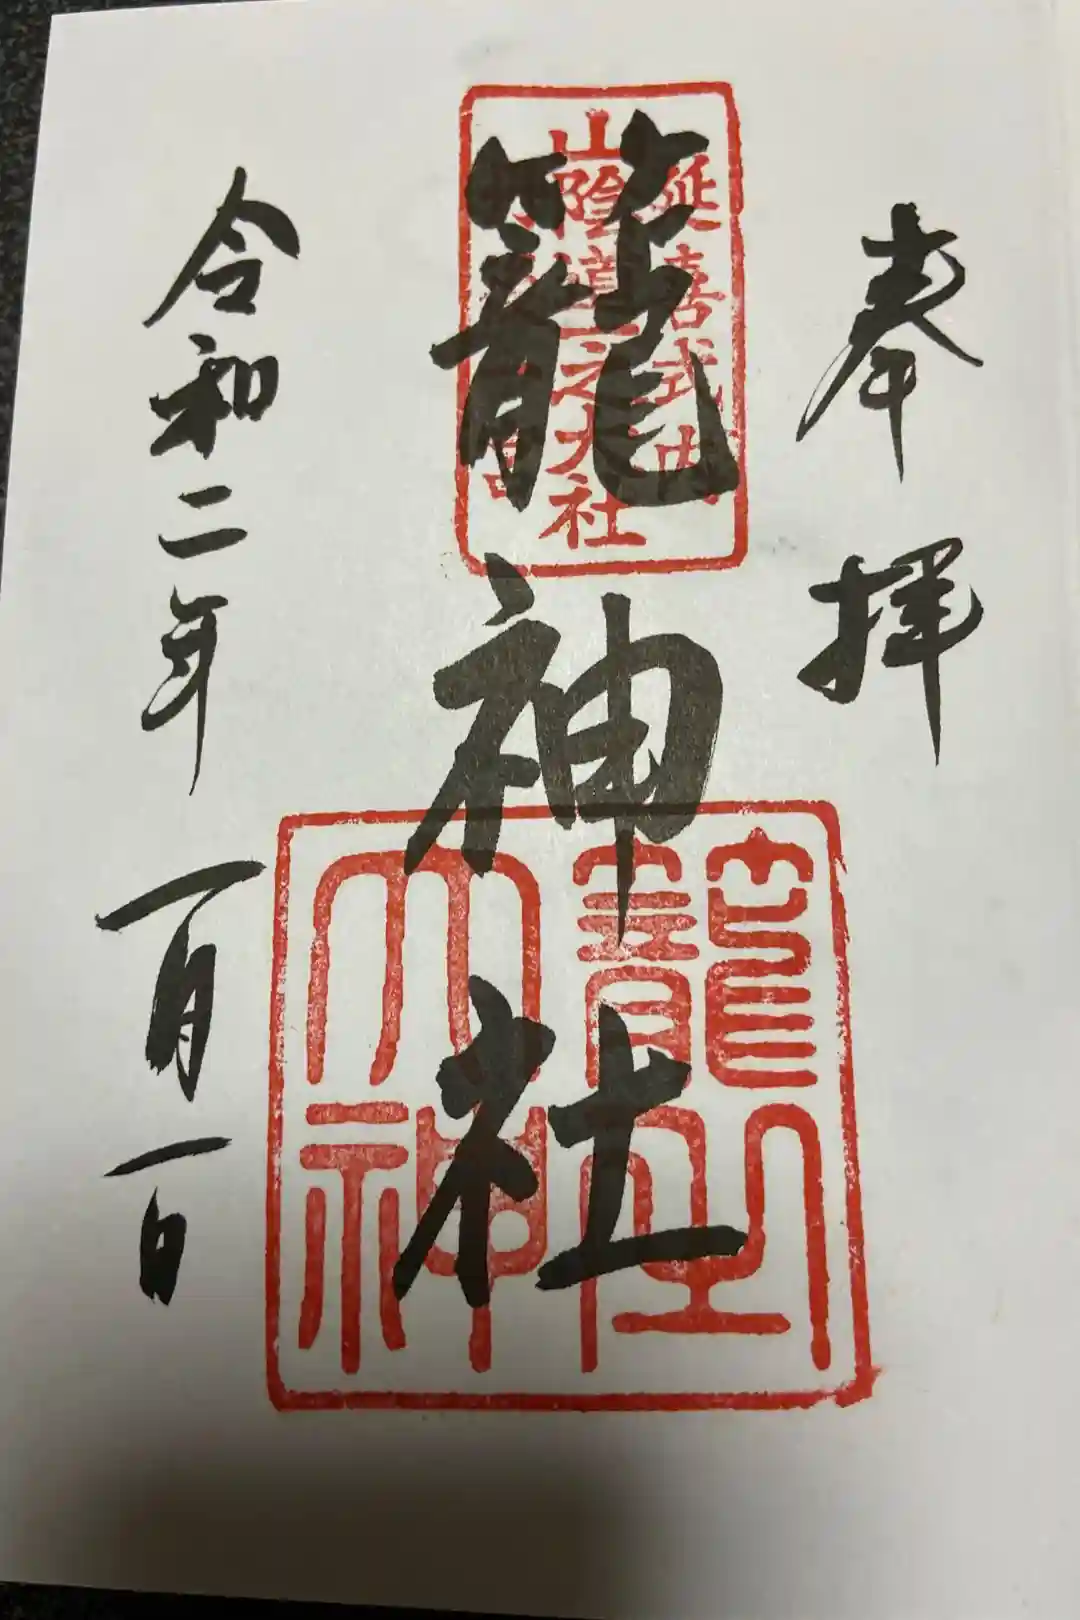 奉拝
延喜式内
山陰道一之大社
籠神社
大神
令和二年一月一日